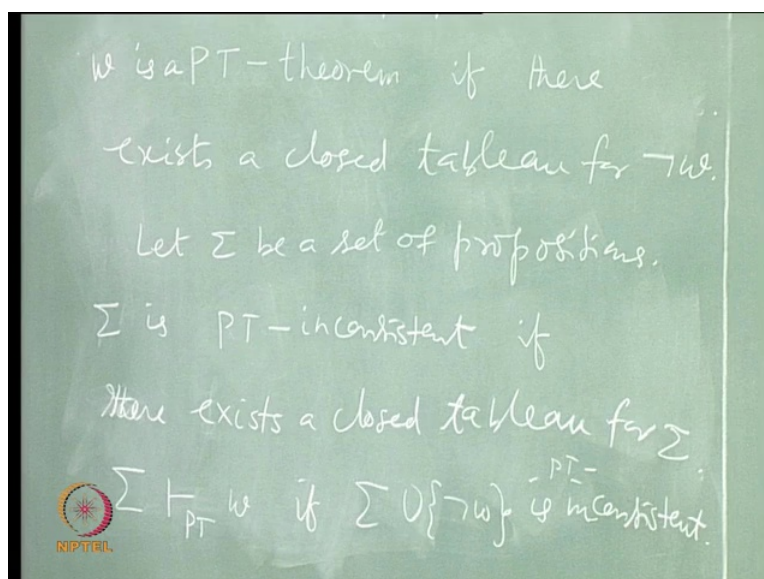 w is a PT - theorem if there
exists a closed tableau for ¬w.
Let Σ be a set of propositions.
Σ is PT - inconsistent if
there exists a closed tableau for Σ.
Σ ⊢PT w if Σ ∪ {¬w} is PT- inconsistent.
NPTEL